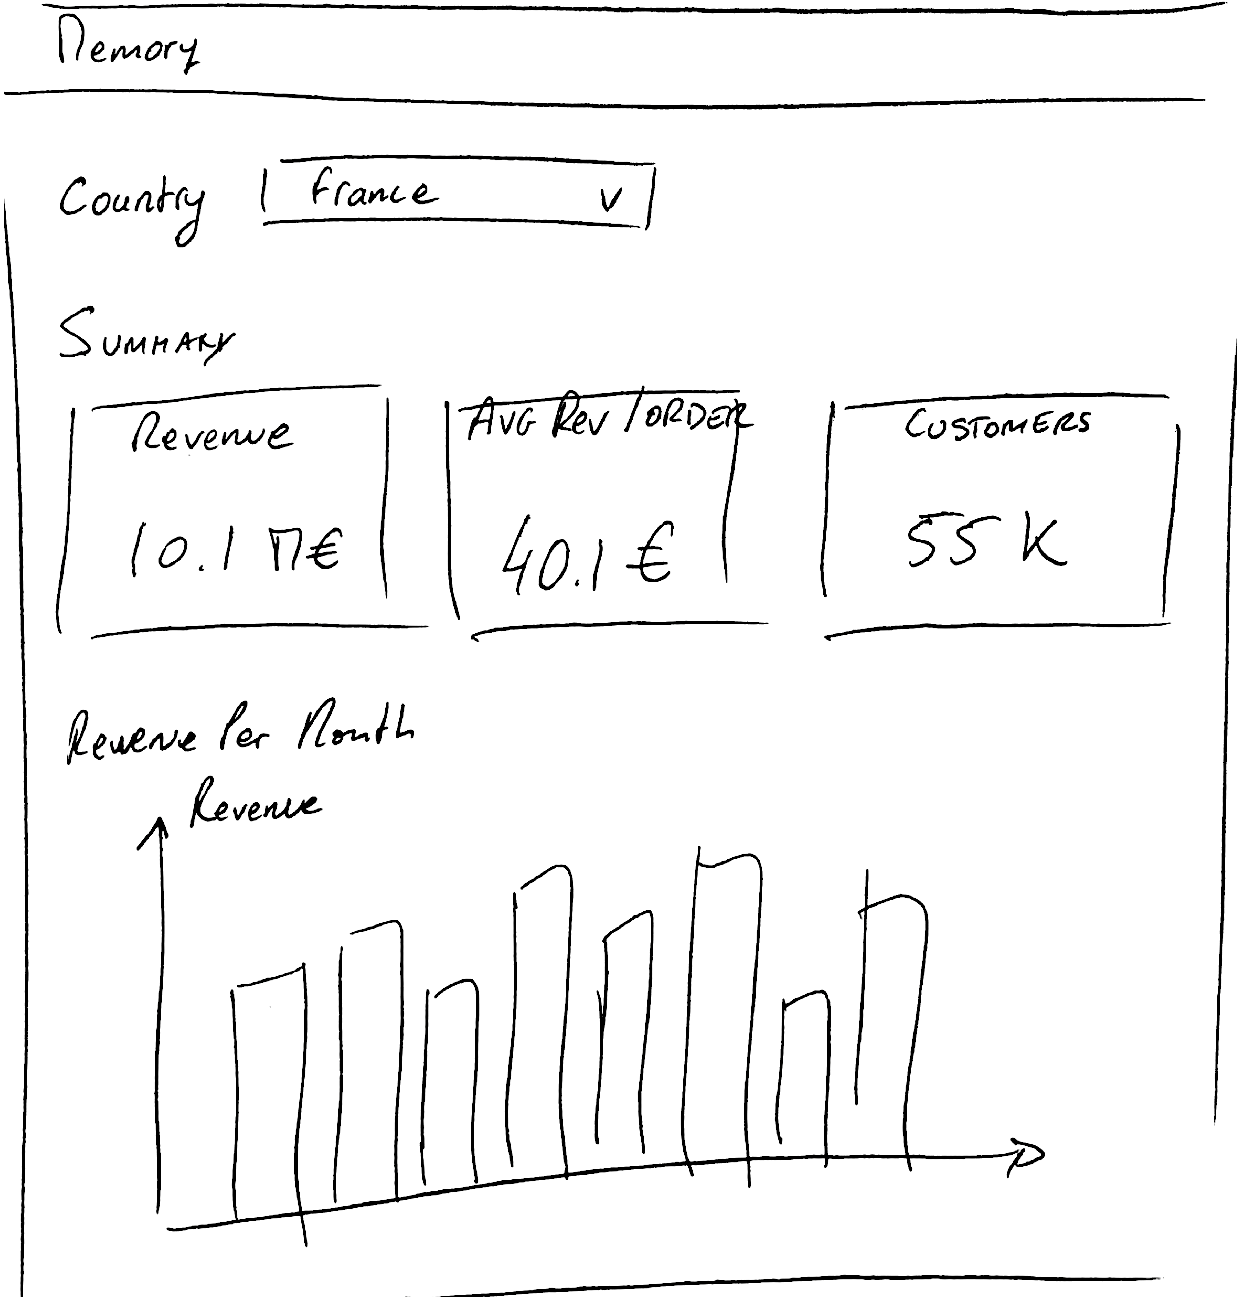 Memory
Country France v
SUMMARY
Revenue
10.1 M€
AVG Rev / ORDER
40.1 €
CUSTOMERS
55 K
Revenue Per Month
Revenue